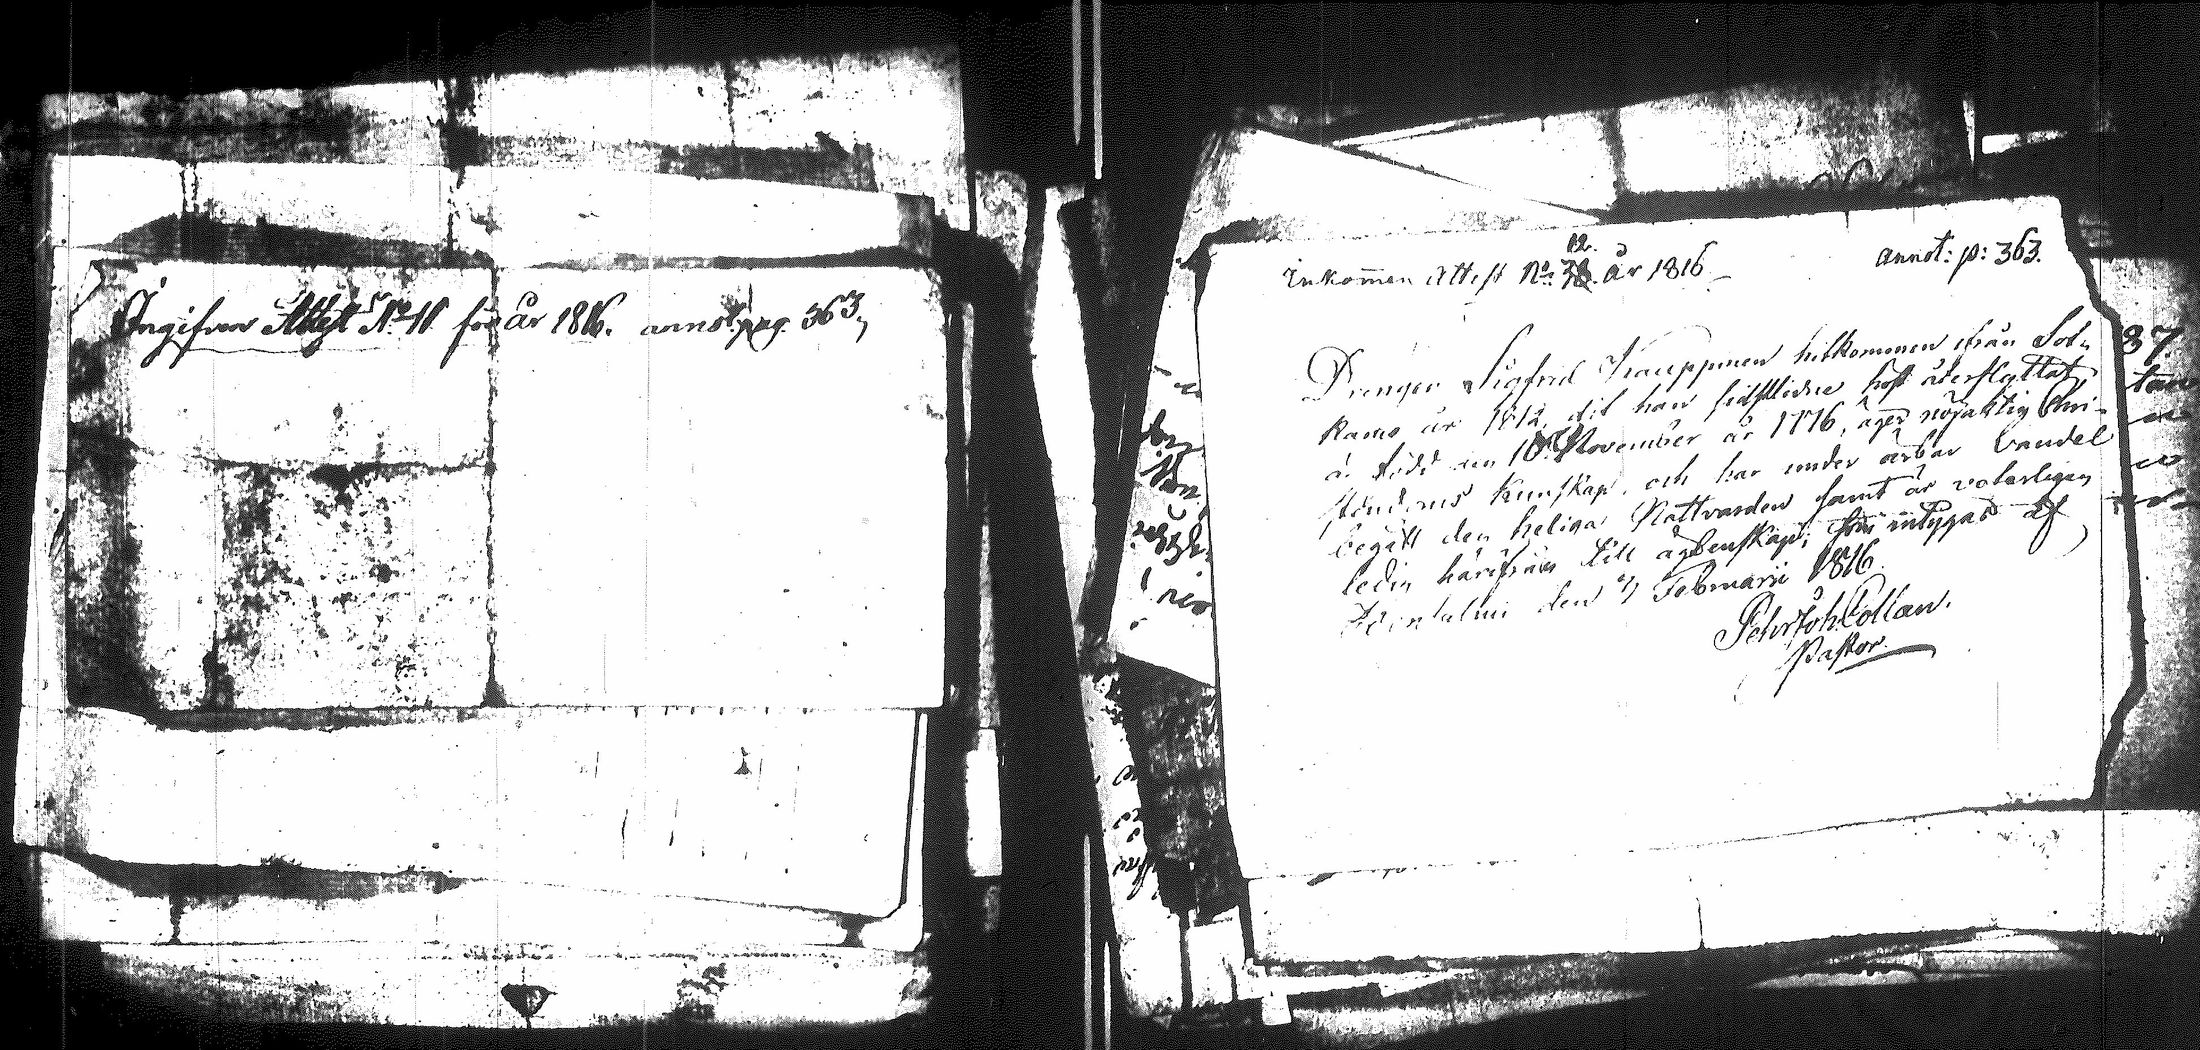 Ingifven Attest No 11 för år 1816. annot. pag. 363,
12.
Inkommen Attest No: år 1816 annot: p: 363.
Drengen Sigfrid Kauppinen hitkommen ifrån Sot-
kamo år 1812, dit han sidstledne höst återflyttat
är född den 10 November år 1776, äger nöjaktig Chri-
stendoms Kunskap, och har under ärbar vandel
begått den heliga Nattvarden samt är veterligen
ledig härifrån till ägtenskap; som intygas af
den 7 Februarii 1816.
Pehr Joh. Collan.
Pastor.
87